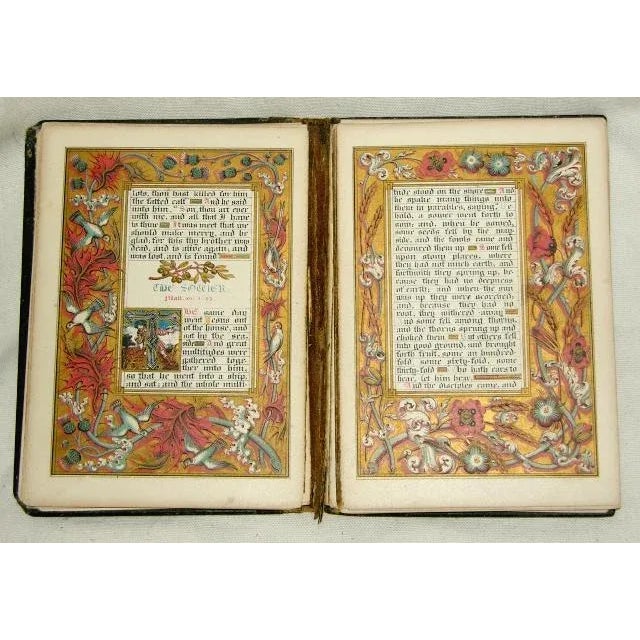 lots, thou hast killed for him
the fatted calf And he said
unto him, "Son, thou art ever
with me, and all that I have
is thine It was meet that we
should make merry, and be
glad; for this thy brother was
dead, and is alive again; and
was lost, and is found
The SOWER.
Matt.
The same day
went Jesus out
of the house, and
sat by the sea-
side And great
multitudes were
gathered toge-
ther unto him,
so that he went into a ship,
and sat; and the whole multi-
tude stood on the shore And
he spake many things unto
them in parables, saying, "Be-
hold, a sower went forth to
sow; and, when he sowed,
some seeds fell by the way-
side, and the fowls came and
devoured them up Some fell
upon stony places, where
they had not much earth; and
forthwith they sprung up, be-
cause they had no deepness
of earth; and when the sun
was up they were scorched;
and, because they had no
root, they withered away
And some fell among thorns,
and the thorns sprung up and
choked them But others fell
into good ground, and brought
forth fruit, some an hundred-
fold, some sixty-fold, some
thirty-fold Who hath ears to
hear, let him hear
And the disciples came, and